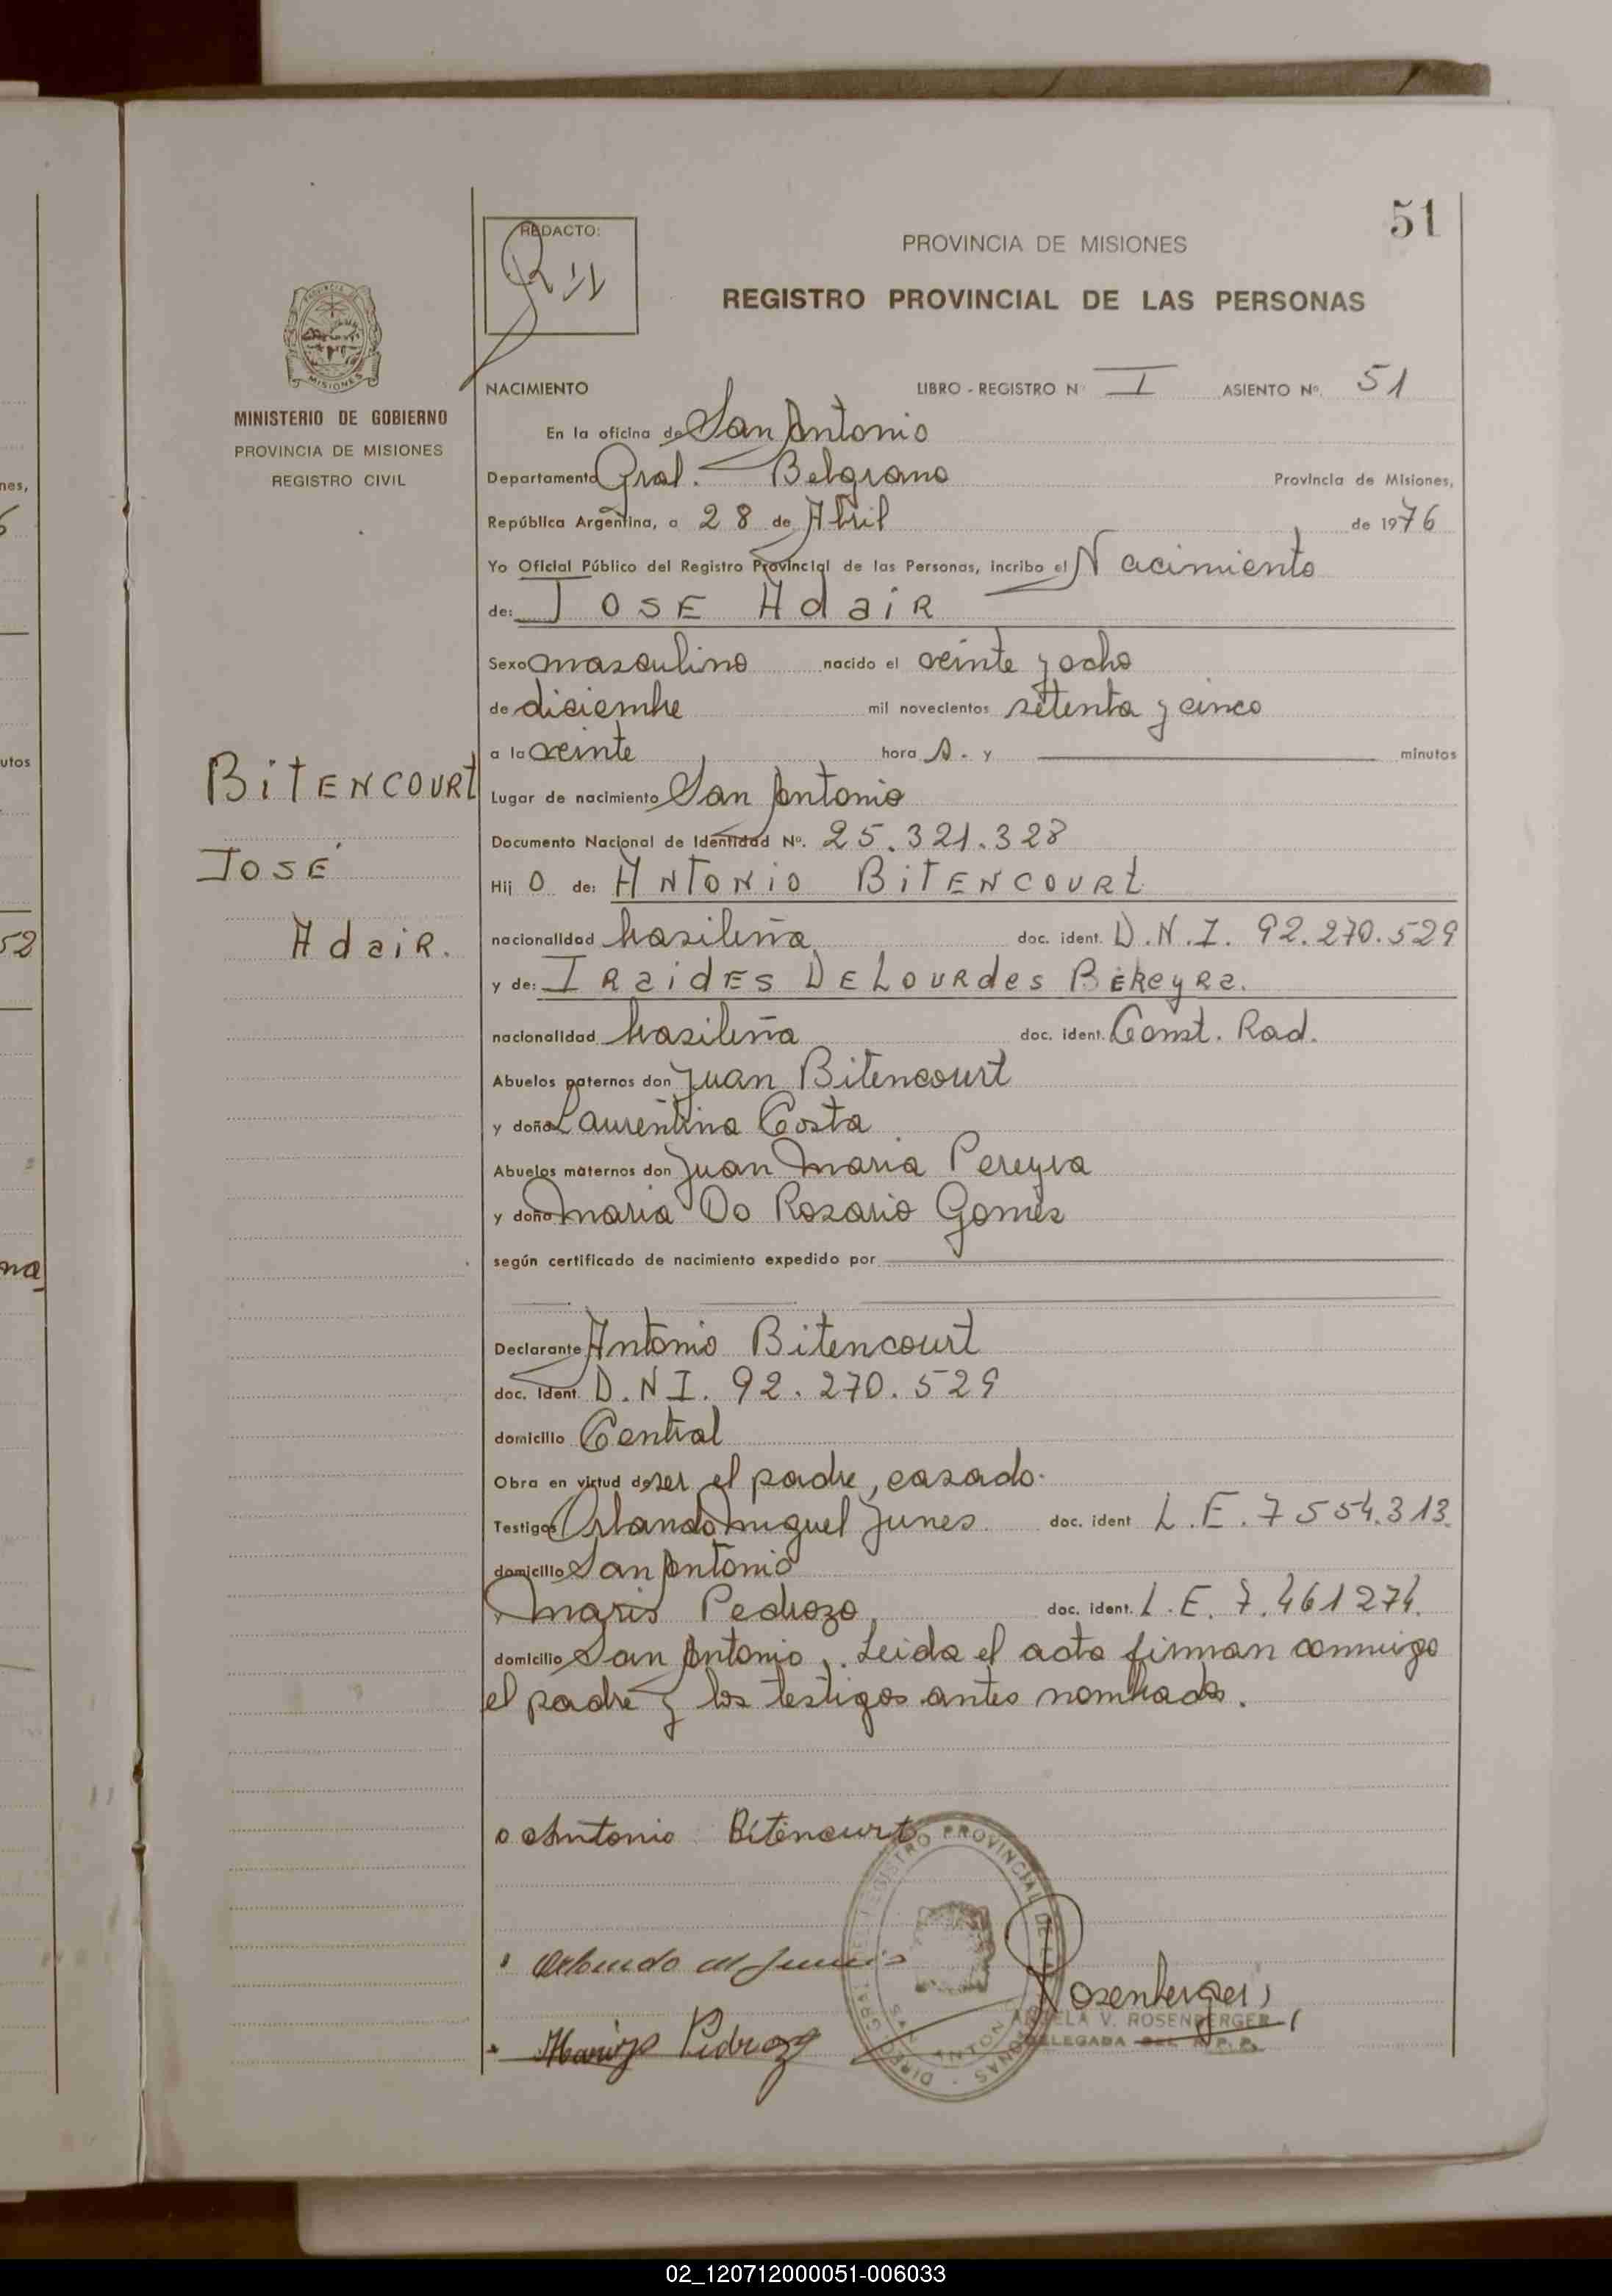 51
REDACTO:
PROVINCIA DE MISIONES
REGISTRO PROVINCIAL DE LAS PERSONAS
PROVINCIA DE
MISIONES
MINISTERIO DE GOBIERNO
PROVINCIA DE MISIONES
REGISTRO CIVIL
BITENCOURT
JOSÉ
AdaiR.
NACIMIENTO LIBRO - REGISTRO Nº I ASIENTO Nº. 51
En la oficina de San Antonio
Departamento Gral. Belgrano Provincia de Misiones,
República Argentina, a 28 de Abril de 1976
Yo Oficial Público del Registro Provincial de las Personas, incribo el Nacimiento
de: JOSE AdaiR
Sexo masculino nacido el veinte y ocho
de diciembre mil novecientos setenta y cinco
a la veinte hora s. y minutos
Lugar de nacimiento San Antonio
Documento Nacional de Identidad Nº. 25.321.328
Hij o de: ANTONIO BITENCOURT
nacionalidad brasileña doc. ident. D.N.I. 92.270.529
y de: IRaidES DE LOURdes BEReyRa.
nacionalidad brasileña doc. ident. Const. Rad.
Abuelos paternos don Juan Bitencourt
y doña Laurentina Costa
Abuelos maternos don Juan Maria Pereyra
y doña Maria Do Rosario Gomes
según certificado de nacimiento expedido por
Declarante Antonio Bitencourt
doc. Ident. D.N.I. 92.270.529
domicilio Central
Obra en virtud de ser el padre, casado.
Testigos Orlando Miguel Junes doc. ident L.E. 7554.313.
domicilio San Antonio
y Maris Pedrozo, doc. ident. L.E. 7.461274.
domicilio San Antonio. Leida el acta firman conmigo
el padre y los testigos antes nombrados.
Antonio Bitencurt
Orlando M Junes
Pedrozo
Rosenberger
ANGELA V. ROSENBERGER
DELEGADA DEL R.P.P.
DIREC. GRAL. DEL REGISTRO PROVINCIAL DE LAS PERSONAS
SAN ANTONIO
nes,
6
utos
52
na
02_120712000051-006033